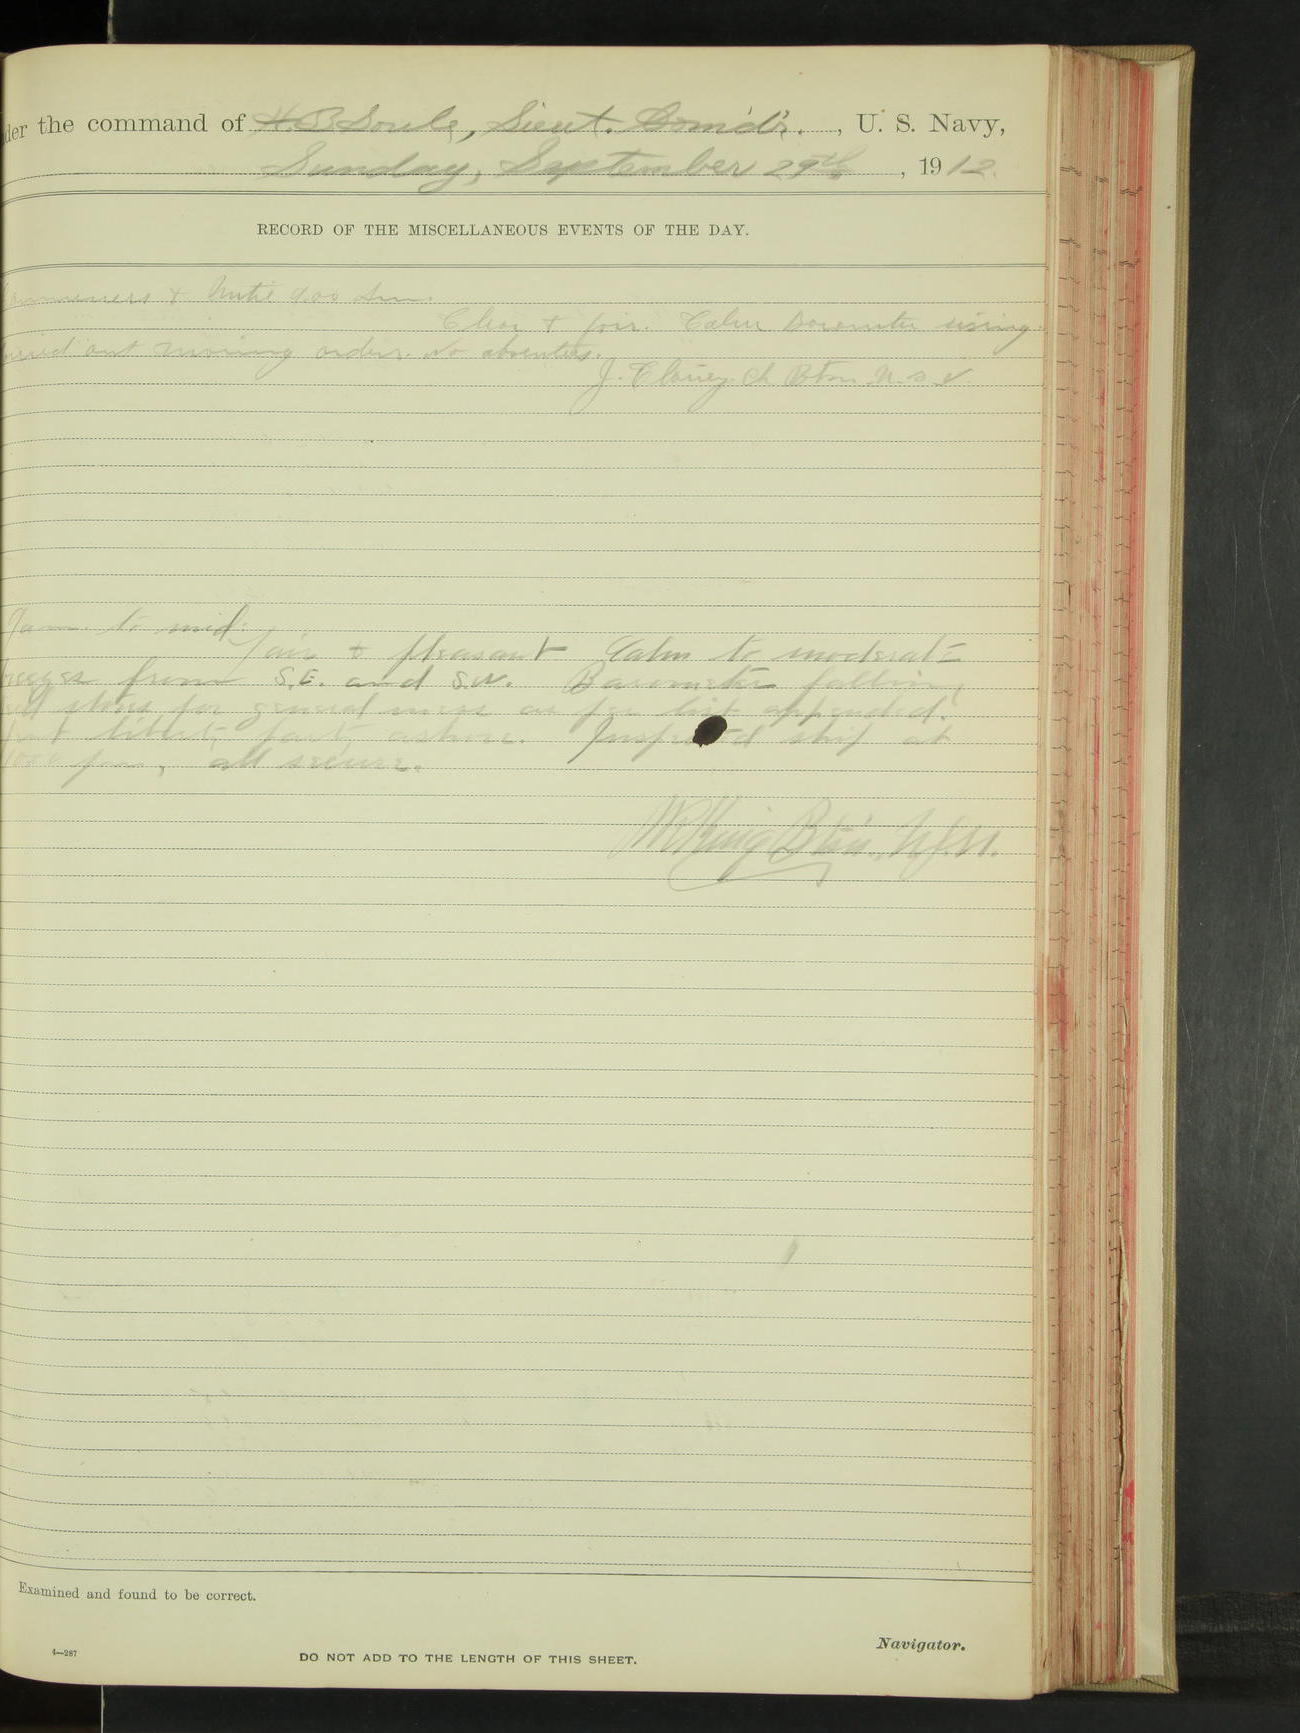 der the command of H. B. Soule, Lieut. Comd'r. , U. S. Navy,
Sunday, September 29th , 1912.
RECORD OF THE MISCELLANEOUS EVENTS OF THE DAY.
& Until 9.00 a.m.
Clear & fair. Calm Barometer rising.
out morning orders. No absentees.
J. Ch Btsn U. S. N.
9 a.m. to mid:
Fair & pleasant Calm to moderate
from S.E. and S.W. Barometer falling
stores for general mess as per list appended.
liberty party ashore. Inspected ship at
p.m., all secure.
W.R. King Btsn., U.S.N.
Examined and found to be correct.
4—287
DO NOT ADD TO THE LENGTH OF THIS SHEET.
Navigator.